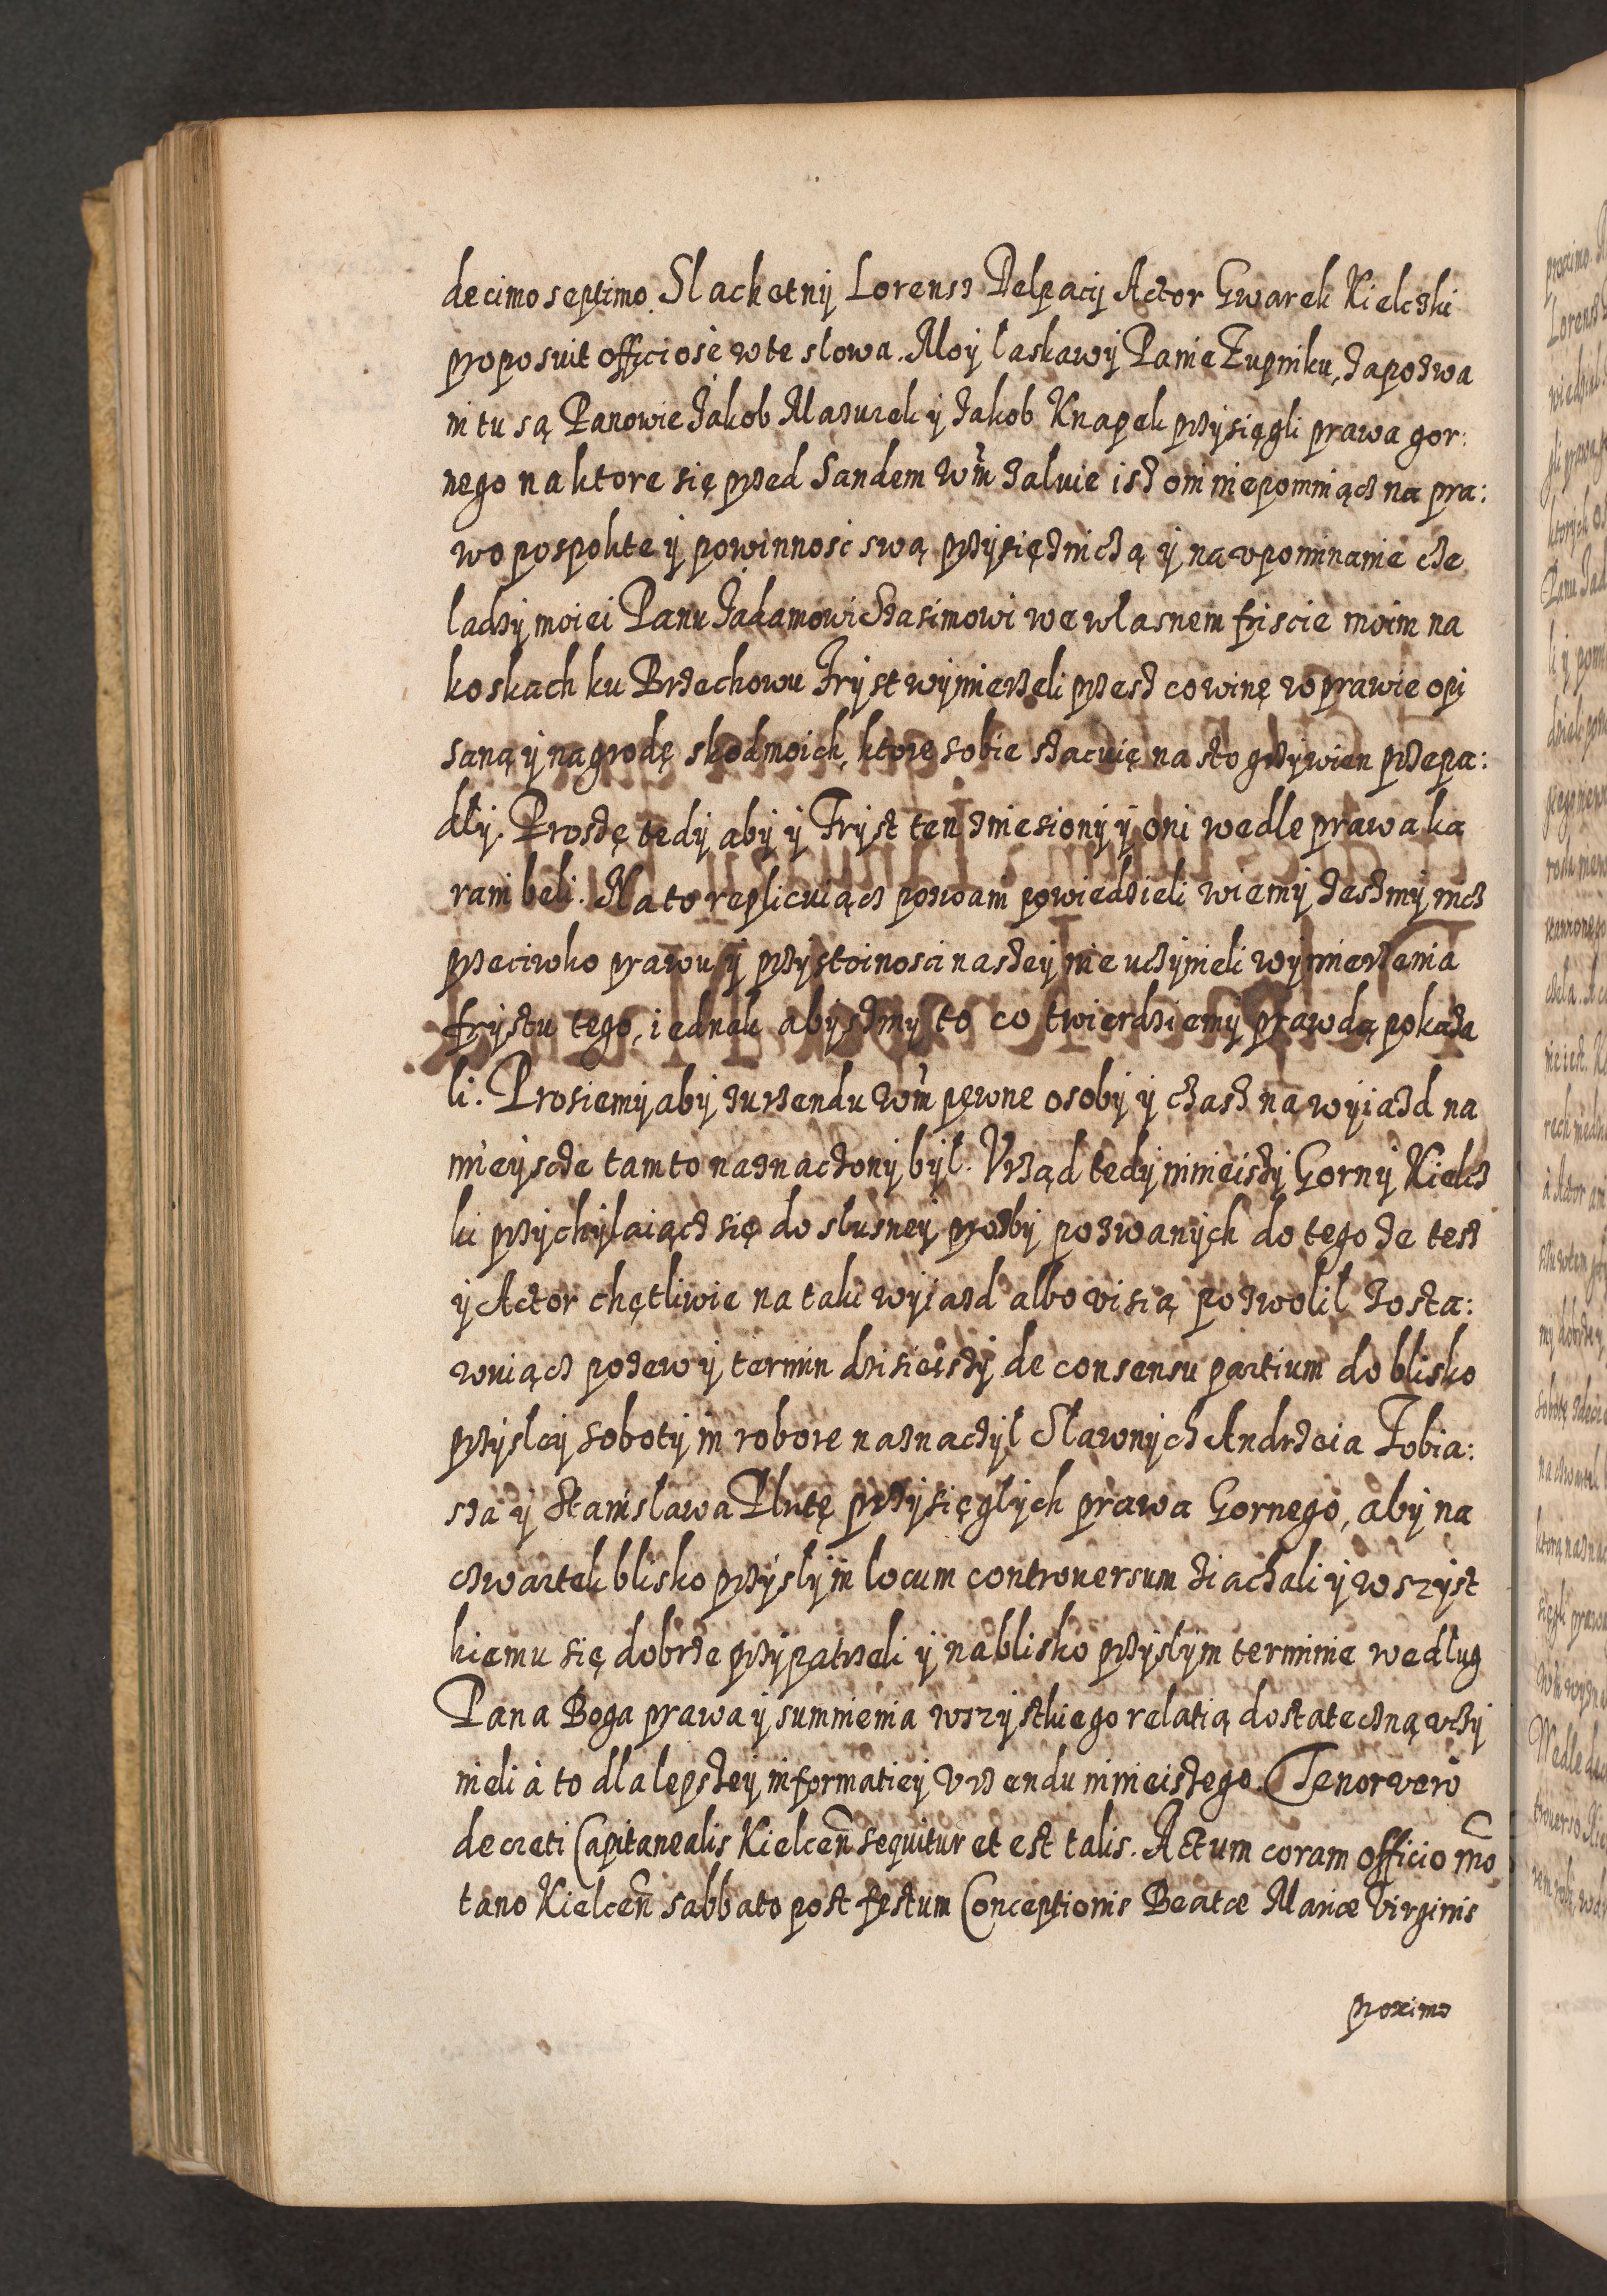 decimo septimo. Slachetny Lorensz Delpacy Actor Gwarek Kielczki
proposuit officiosè w te slowa. Moy laskawy Panie Zupniku, zapozwa
ni tu są Panowie Jakob Mazurek y Jakob Knapek przysięgli prawa gor:
nego na ktore się przed Sandem Wm̃ zaluie isz oni niepomniącz na pra:
wo pospolite y powinnosc swą przysięzniczą y na vpominanie cze
ladzy moiei Panu Jadamowi Szasimowi we wlasnem friscie moim na
koskach ku Brzechowu Fryst wymierzeli przesz co winę w prawie opi
saną y nagrodę skod moich, ktore sobie szacuię na sto grzywien przepa:
dly. Proszę tedy aby y Fryst ten zniesiony y oni wedle prawa ka
rani beli. Na to replicuiącz pozwani powiedzieli wiemy zeszmy nicz
przeciwko prawu y przystoinosci naszey nie uczynieli wymierzenia
frystu tego, iednak abyszmy to co twierdziemy prawdą pokaza
li. Prosiemy aby z urzendu Wm̃ pęwne osoby y czasz na wyiazd na
mieyscze tamto naznaczony byl. Vrząd tedy ninieiszy Gorny Kielcz
ki przychylaiącz się do slusney prozby pozwanych do tego ze tesz
y Actor chętliwie na taki wyiazd albo visią pozwolil zosta:
wuiącz pozew y termin dzisieiszy de consensu partium do blisko
przysley soboty in robore naznaczyl Slawnych Andrzeia Tobia:
sza y Stanislawa Plutę przysięglych prawa Gornego, aby na
czwartek blisko przysly in locum controuersum ziachali y wszyst
kiemu się dobrze przypatrzeli y na blisko przyslym terminie wedlug
Pana Boga prawa y sumnienia wszystkiego relatią dostateczną vczy
nieli à to dla lepszey informatiey Vrzendu ninieiszego. Tenor verò
decreti Capitanealis Kielceñ sequitur et est talis. Actum coram officio mõ
tano Kielceñ sabbato post festum Conceptionis Beatæ Mariæ Virginis
proximo